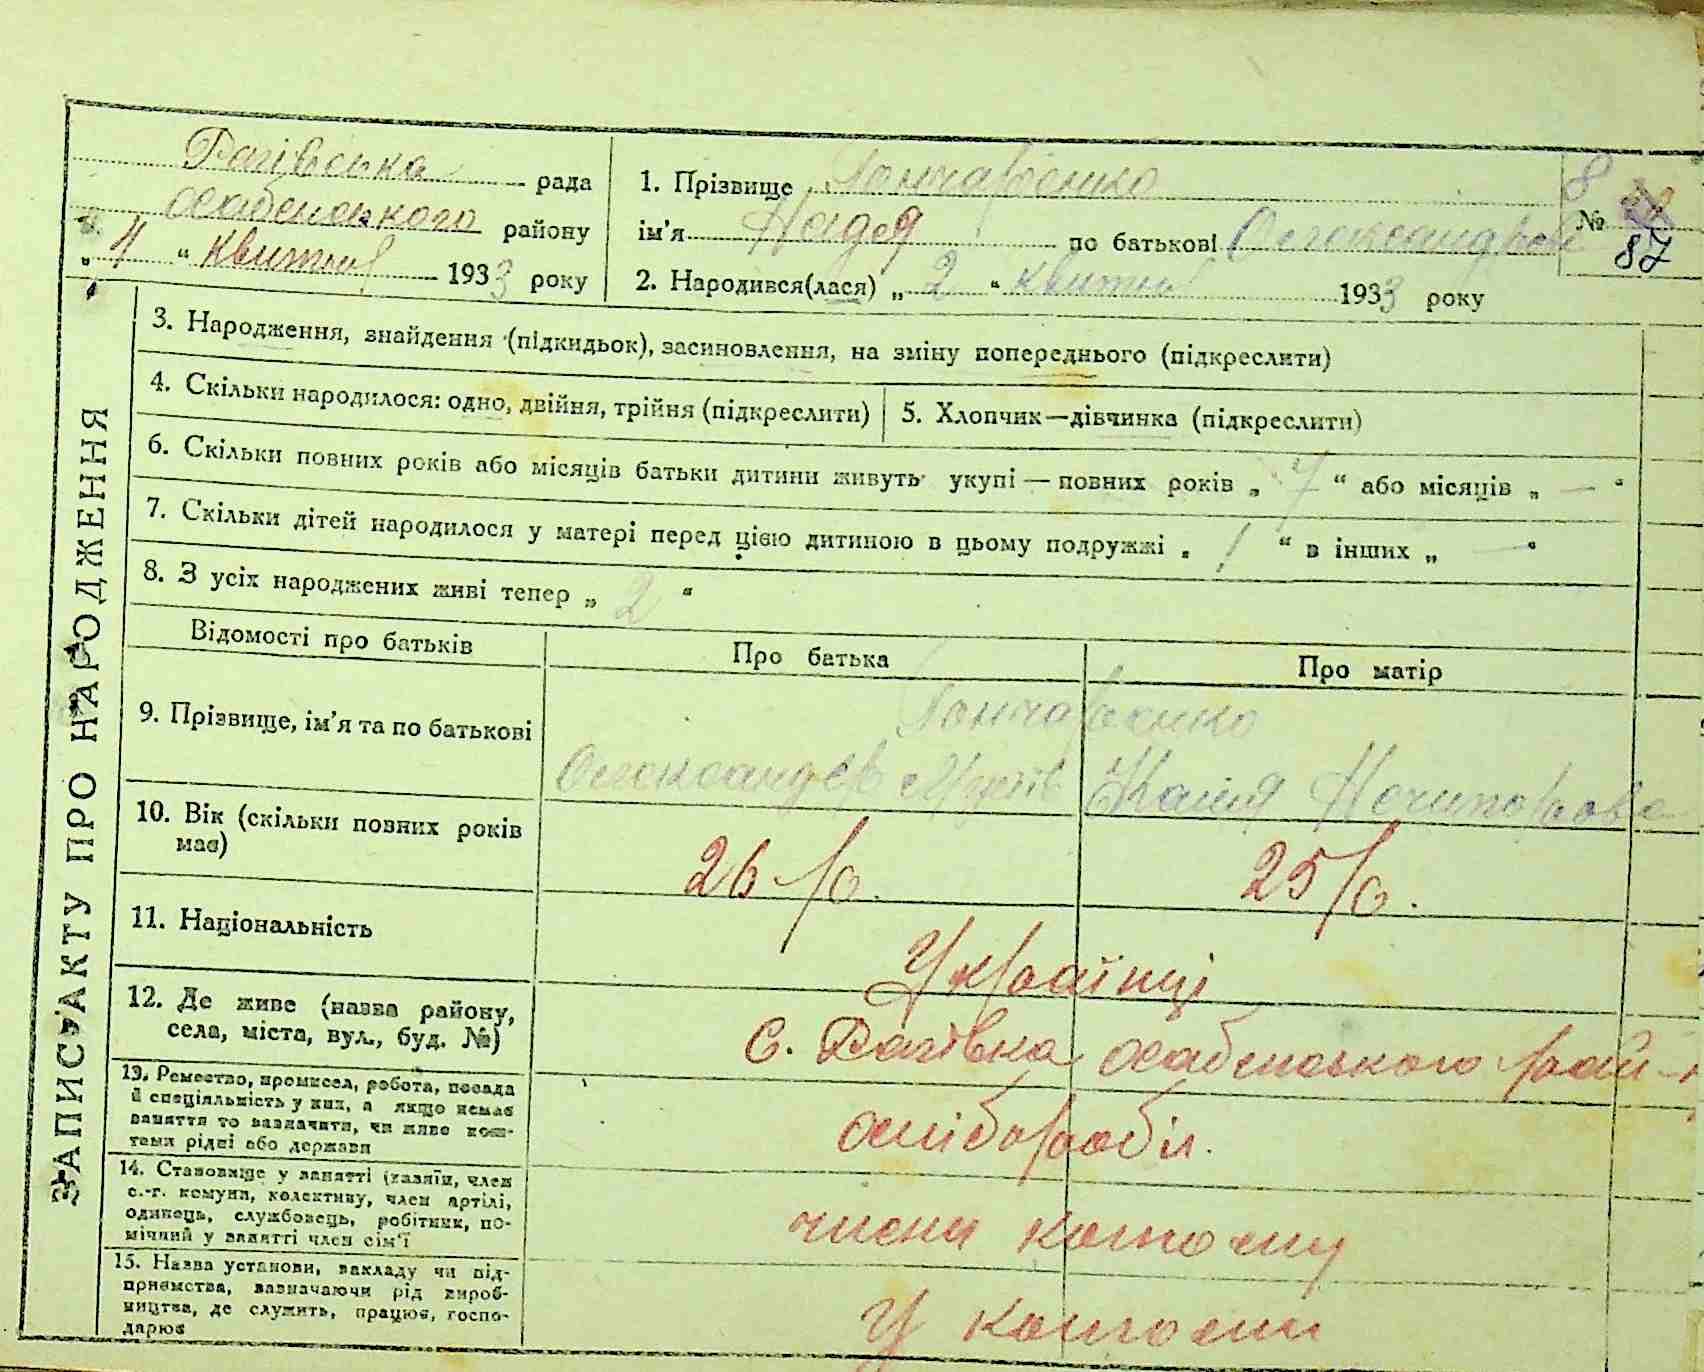 Рагівська рада
району
" 4 " квітня 1933 року
1. Прізвище Гончаренко
ім'я Надія по батькові Олександрів
2. Народився(лася) „ 2 " квітня 1933 року
8
№
87
ЗАПИС АКТУ ПРО НАРОДЖЕННЯ
3. Народження, знайдення (підкидьок), засиновлення, на зміну попереднього (підкреслити)
4. Скільки народилося: одно, двійня, трійня (підкреслити)
5. Хлопчик—дівчинка (підкреслити)
6. Скільки повних років або місяців батьки дитини живуть укупі — повних років „ 7 " або місяців „ — "
7. Скільки дітей народилося у матері перед цією дитиною в цьому подружжі „ 1 " в інших „ — "
8. З усіх народжених живі тепер „ 2 "
Відомості про батьків
Про батька
Про матір
9. Прізвище, ім'я та по батькові
Гончаренко
Олександер
Нечипорова
10. Вік (скільки повних років
має)
26 р.
25 р.
11. Національність
Українці
12. Де живе (назва району,
села, міста, вул., буд. №)
С. Рагівка
13. Ремество, промисел, робота, посада
й спеціяльність у них, а якщо немає
заняття то зазначити, чи живе кош-
тами рідні або держави
хлібороби
14. Становище у занятті (хазяїн, член
с.-г. комуни, колективу, член артілі,
одинець, службовець, робітник, по-
мічний у занятті член сім'ї
члени колгоспу
15. Назва установи, закладу чи під-
приємства, зазначаючи рід вироб-
ництва, де служить, працює, госпо-
дарює
У колгоспі